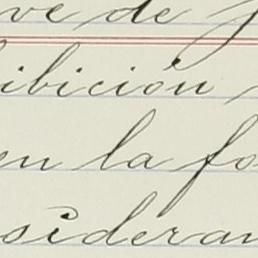 ve de
ibición
en la fo
sideran